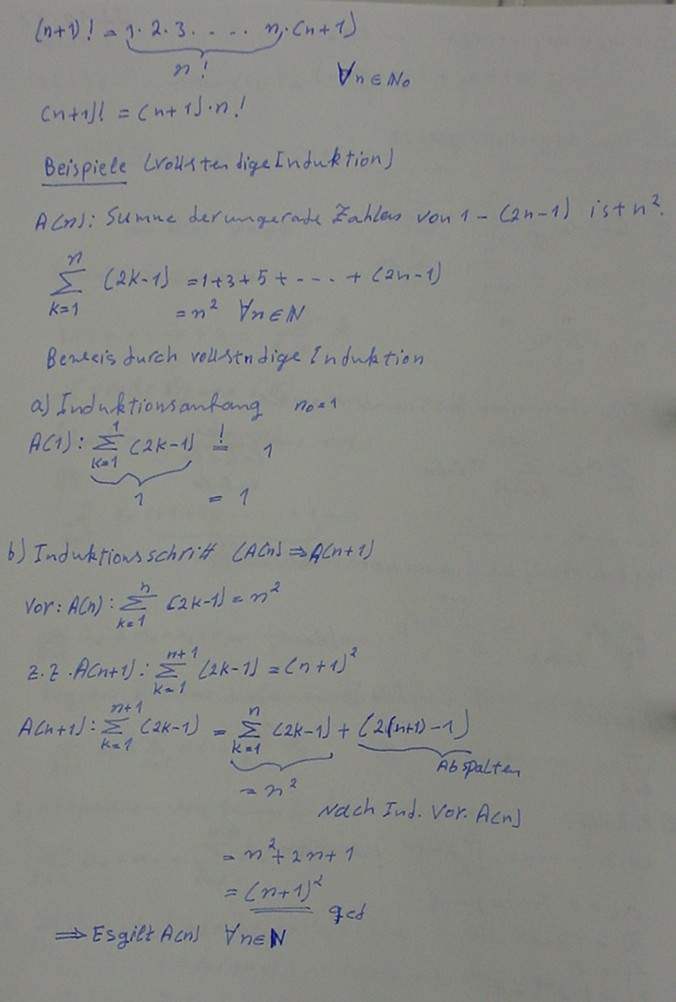 (n+1)! = 1·2·3· .... n·(n+1)
n!
∀n∈ℕ₀
(n+1)! = (n+1)·n!
Beispiele (vollstendige Induktion)
A(n): Summe der ungerade Zahlen von 1 - (2n-1) ist n².
n
∑ (2k-1) = 1+3+5+ ---- + (2n-1)
k=1
= n² ∀n∈ℕ
Beweis durch vollstndige Induktion
a) Induktionsanfang n₀=1
1
A(1): ∑ (2k-1) ! = 1
k=1
1 = 1
b) Induktionsschritt (A(n) ⇒ A(n+1)
n
Vor: A(n): ∑ (2k-1) = n²
k=1
n+1
z.z. A(n+1): ∑ (2k-1) = (n+1)²
k=1
n+1 n
A(n+1): ∑ (2k-1) = ∑ (2k-1) + (2(n+1)-1)
k=1 k=1
Abspalten
= n²
Nach Ind. Vor. A(n)
= n²+2n+1
= (n+1)² qed
⇒ Es gilt A(n) ∀n∈ℕ